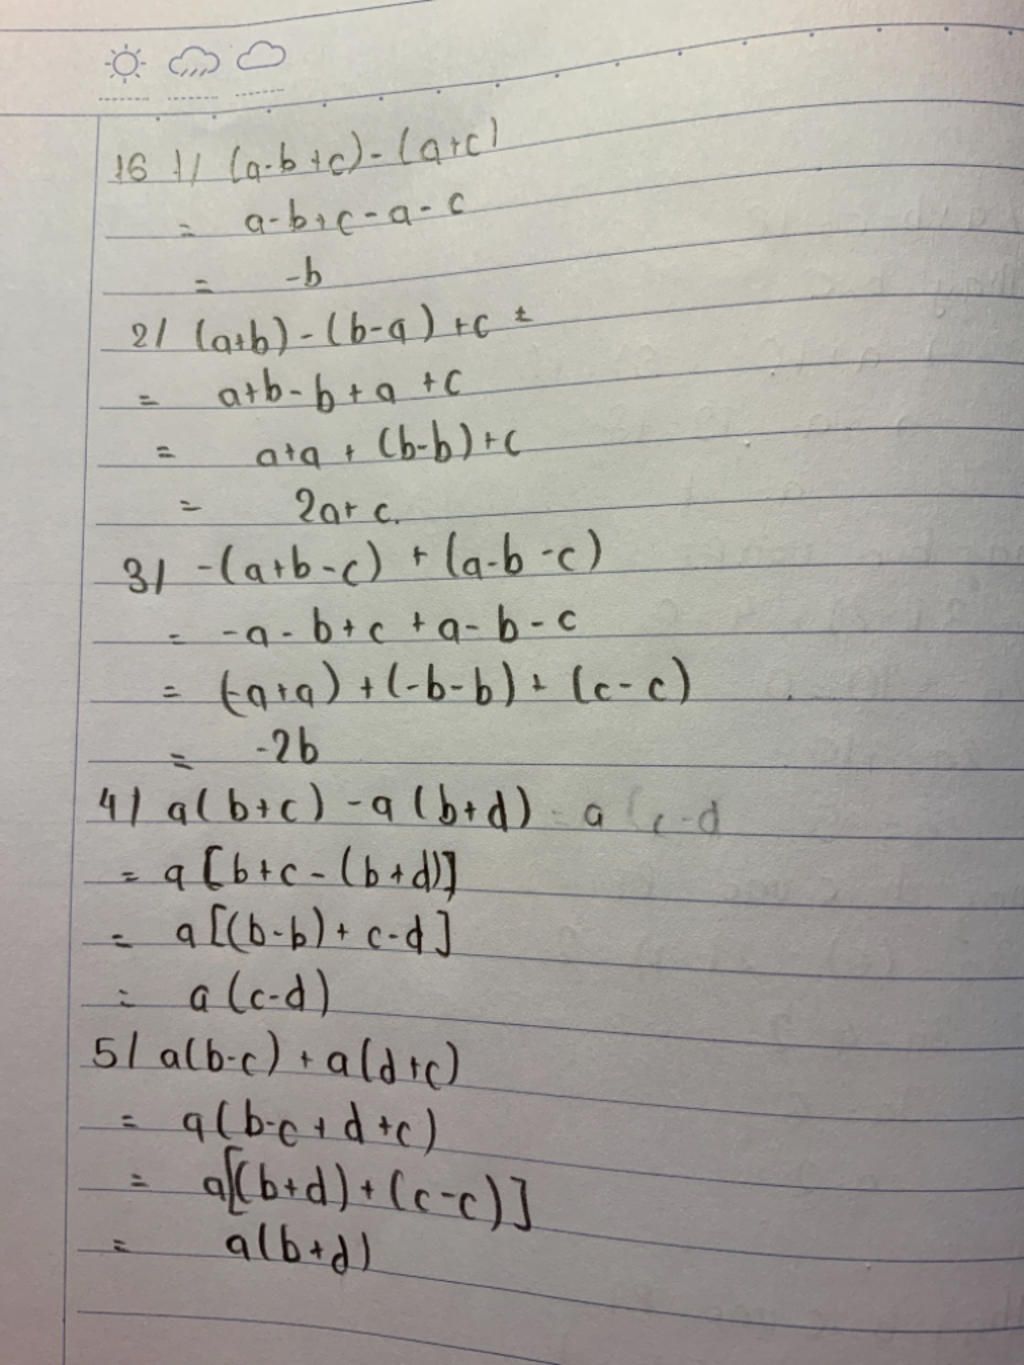 16 1/ (a-b+c)-(a+c)
= a-b+c-a-c
= -b
2/ (a+b)-(b-a)+c =
= a+b-b+a+c
= a+a+(b-b)+c
= 2a+c.
3/ -(a+b-c)+(a-b-c)
= -a-b+c+a-b-c
= (-a+a)+(-b-b)+(c-c)
= -2b
4/ a(b+c)-a(b+d) = a(c-d
= a[b+c-(b+d)]
= a[(b-b)+c-d]
= a(c-d)
5/ a(b-c)+a(d+c)
= a(b-c+d+c)
= a[(b+d)+(c-c)]
= a(b+d)